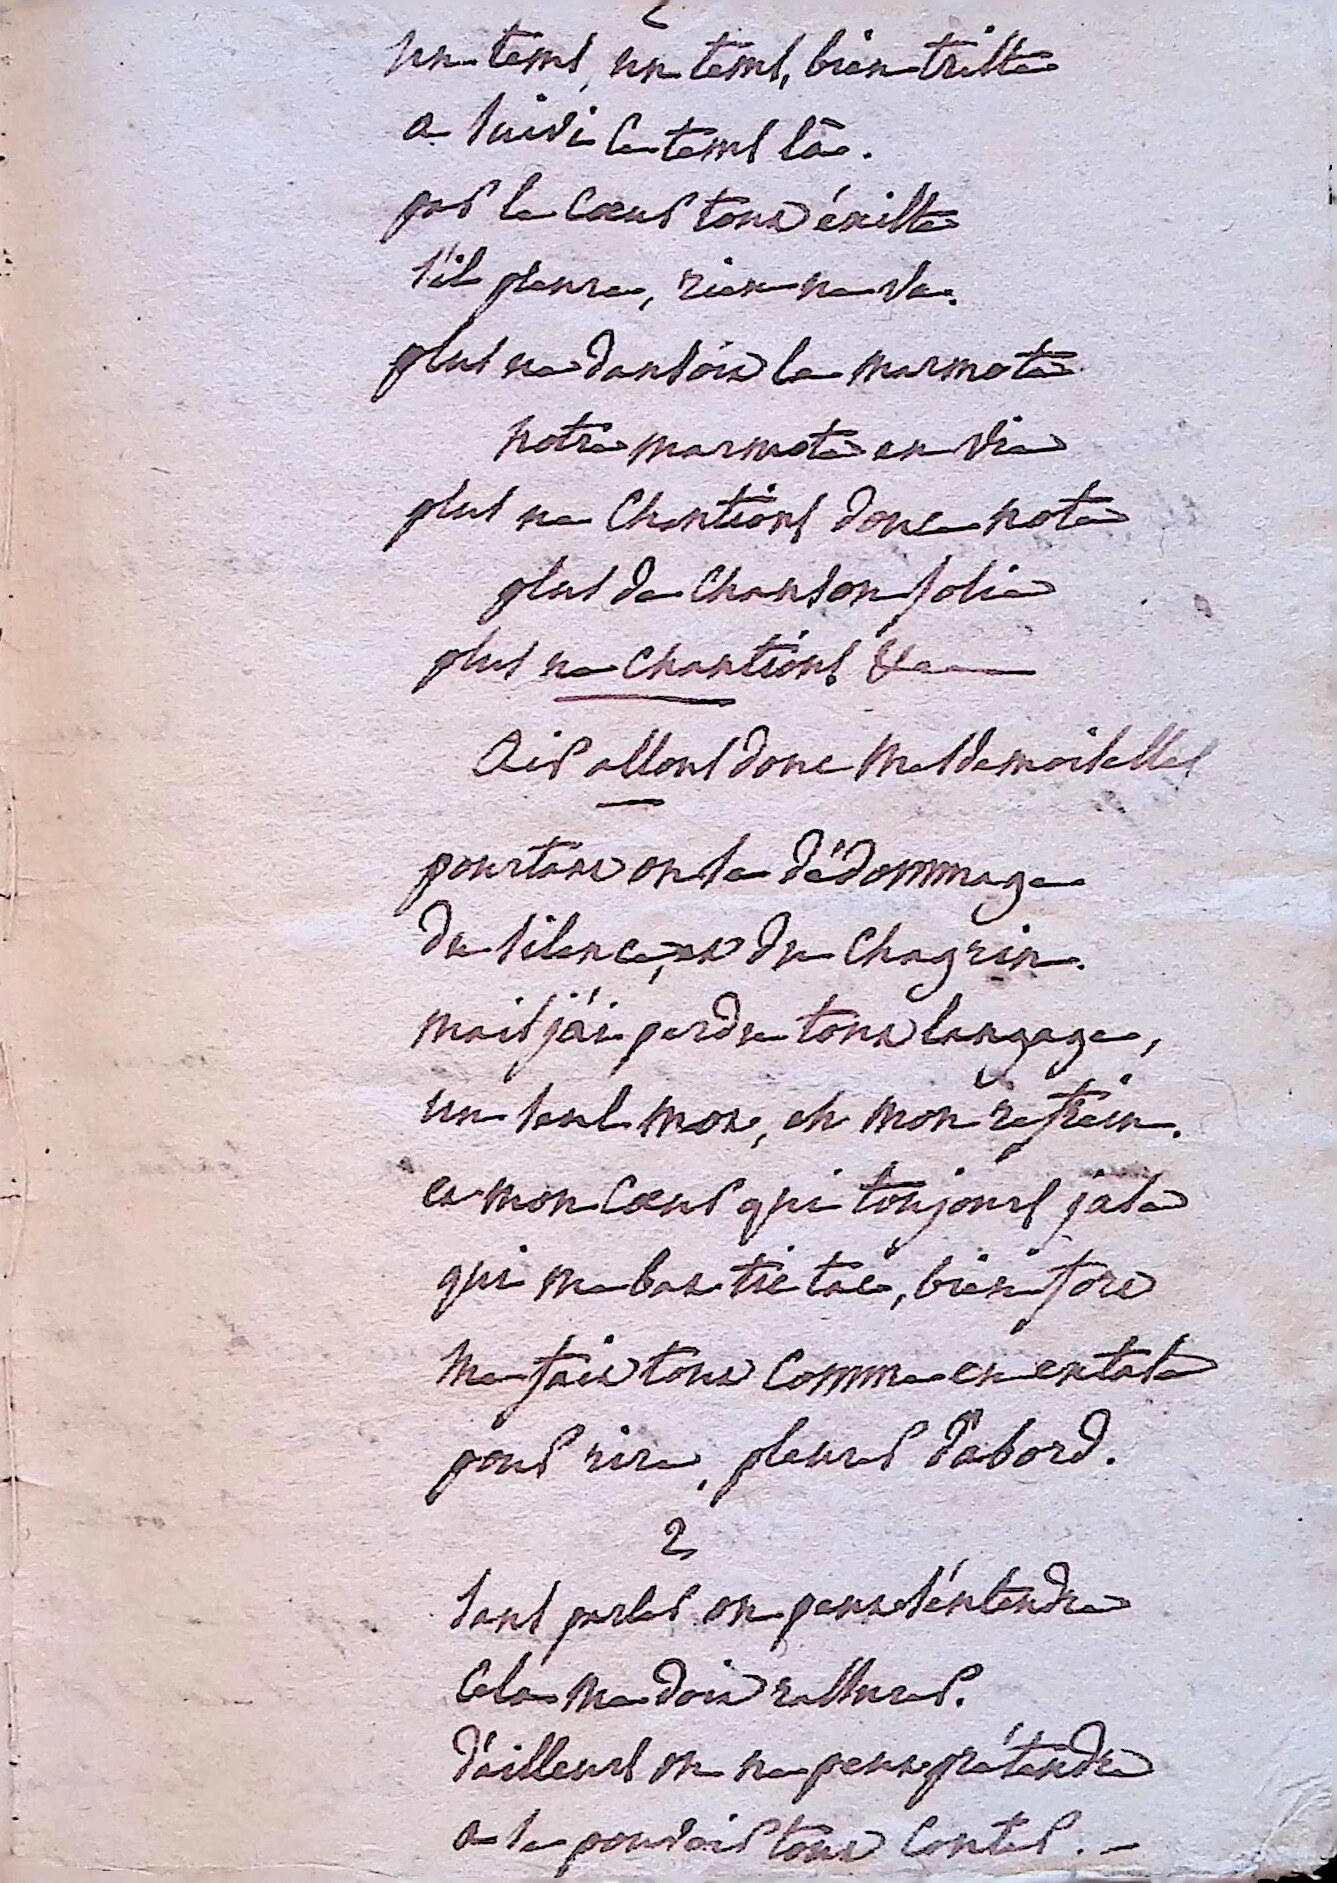 2
un tems, un tems, bien triste
a suivi ce tems là.
par le coeur tout éxiste
s'il pleure, rien ne va.
plus ne dansoit la marmote
notre marmote en vie
plus ne chantions donc note
plus de chanson jolie
plus ne chantions &c
Air allons donc Mesdemoiselles
pourtant on se dédommage
du silence, et du chagrin.
mais j'ai perdu tout langage,
un seul mot, eh mon refrein.
et mon coeur qui toujours jase
qui me bat tic tac, bien fort
me fait tout comme en extase
pour rire, pleurer d'abord.
2
sans parler on peut s'entendre
cela me doit rassurer.
d'ailleurs on ne peut prétendre
a se pouvoir tout conter. -